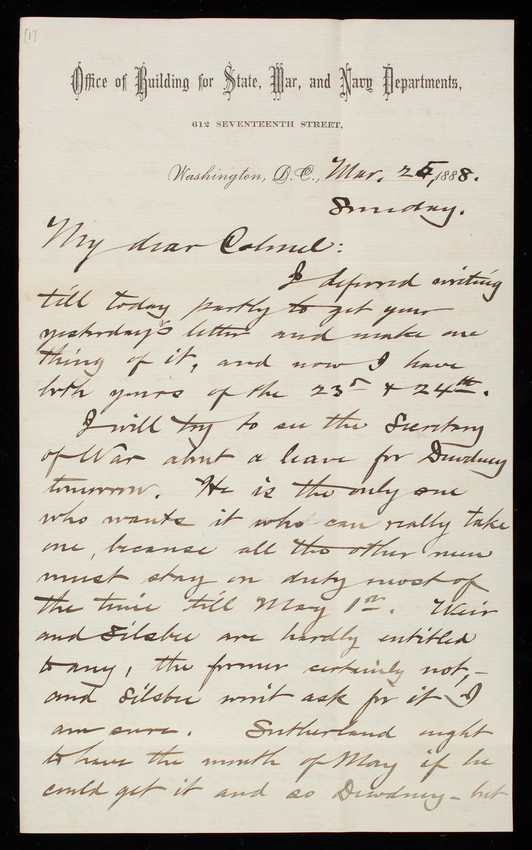 [1]
Office of Building for State, War, and Navy Departments,
612 SEVENTEENTH STREET,
Washington, D.C., Mar. 25, 1888.
Sunday.
My dear Colonel:
I deferred writing
till today partly to get your
yesterday's letter and make one
thing of it, and now I have
both yours of the 23d & 24th.
I will try to see the Secretary
of War about a leave for Dewdney
tomorrow. He is the only one
who wants it who can really take
one, because all the other men
must stay on duty most of
the time till May 1st. Weir
and Silsbee are hardly entitled
to any, the former certainly not,-
and Silsbee won't ask for it I
am sure. Sutherland ought
to have the month of May if he
could get it and so Dewdney - but